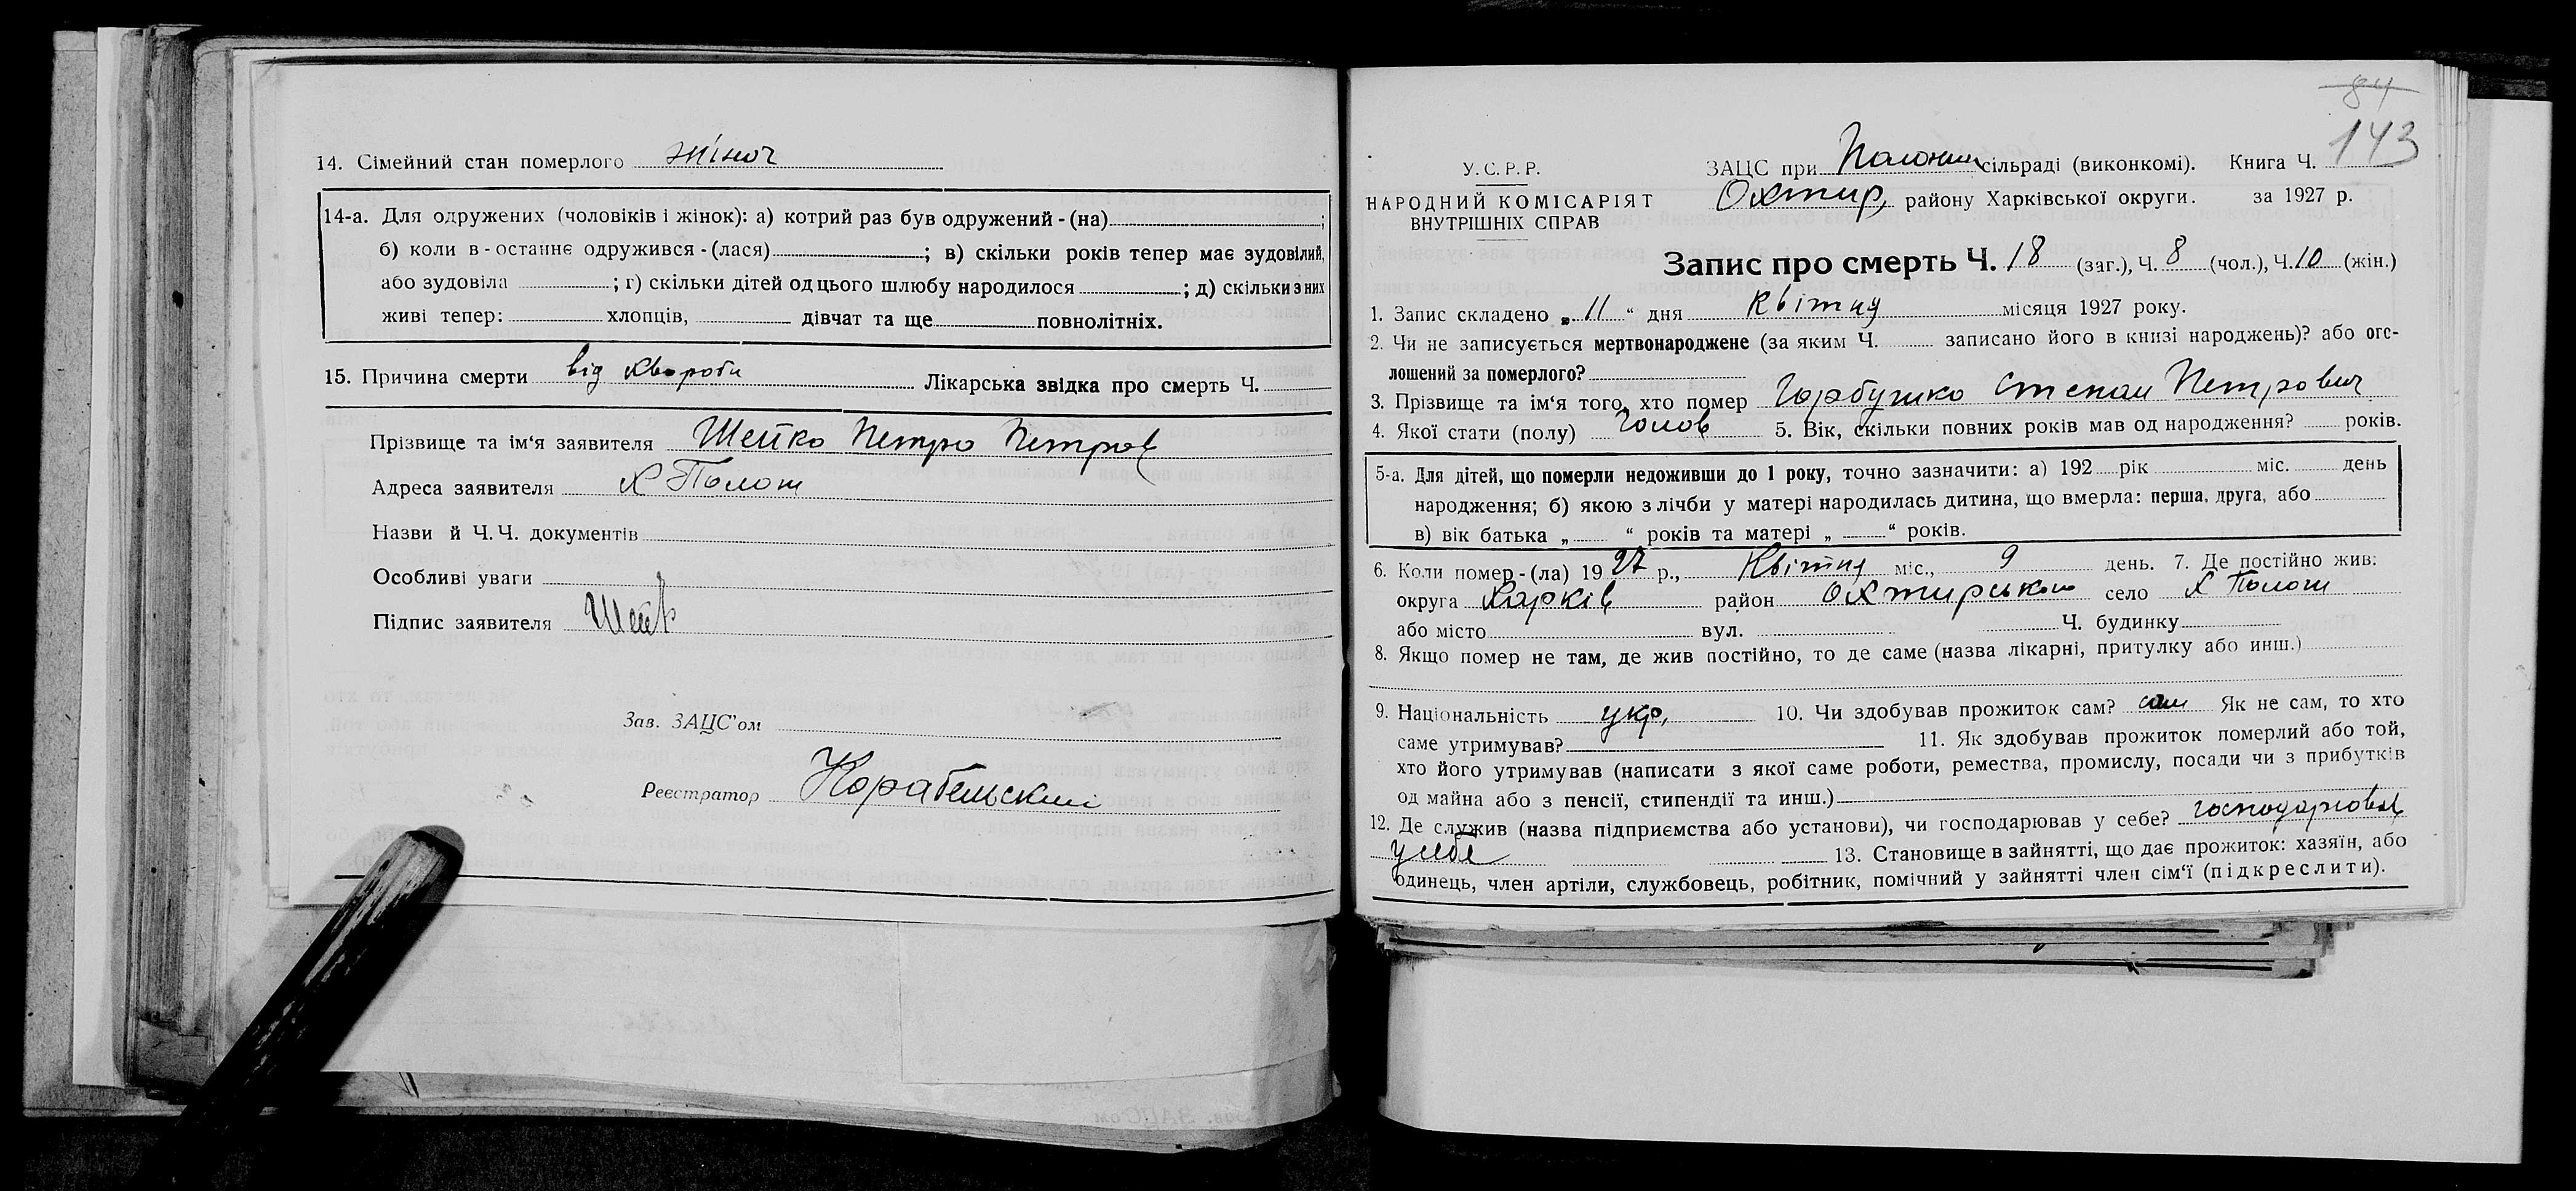 14. Сімейний стан померлого жіноч
14-а. Для одружених (чоловіків і жінок): а) котрий раз був одружений - (на) ;
б) коли в - останнє одружився - (лася) ; в) скільки років тепер має зудовілий,
або зудовіла ; г) скільки дітей од цього шлюбу народилося ; д) скільки з них
живі тепер: хлопців, дівчат та ще повнолітніх.
15. Причина смерти від хвороби Лікарська звідка про смерть Ч.
Прізвище та ім'я заявителя Шейко Петро Петров
Адреса заявителя х Полош
Назви й Ч. Ч. документів
Особливі уваги
Підпис заявителя
Зав. ЗАЦС'ом
Реєстратор Корабельский
84
143
У. С. Р. Р.
НАРОДНИЙ КОМІСАРІЯТ
ВНУТРІШНІХ СПРАВ
ЗАЦС при сільраді (виконкомі). Книга Ч.
Охтир, району Харківської округи. за 1927 р.
Запис про смерть Ч. 18 (заг.), Ч. 8 (чол.), Ч. 10 (жін.)
1. Запис складено „ 11 “ дня Квітня місяця 1927 року.
2. Чи не записується мертвонароджене (за яким Ч. записано його в книзі народжень)? або ого-
лошений за померлого?
3. Прізвище та ім'я того, хто помер Горбушко Степан Петрович
4. Якої стати (полу) Чолов 5. Вік, скільки повних років мав од народження? років.
5-а. Для дітей, що померли недоживши до 1 року, точно зазначити: а) 192 рік міс. день
народження; б) якою з лічби у матері народилась дитина, що вмерла: перша, друга, або
в) вік батька „ “ років та матері „ “ років.
6. Коли помер - (ла) 1927 р., Квітня міс., 9 день. 7. Де постійно жив:
округа Харків район Охтирського село х Полош
або місто вул. Ч. будинку
8. Якщо помер не там, де жив постійно, то де саме (назва лікарні, притулку або инш.)
9. Національність укр, 10. Чи здобував прожиток сам? сам Як не сам, то хто
саме утримував? 11. Як здобував прожиток померлий або той,
хто його утримував (написати з якої саме роботи, ремества, промислу, посади чи з прибутків
од майна або з пенсії, стипендії та инш.)
12. Де служив (назва підприємства або установи), чи господарював у себе? господарював
у себе 13. Становище в зайнятті, що дає прожиток: хазяїн, або
одинець, член артіли, службовець, робітник, помічний у зайнятті член сім'ї (підкреслити).